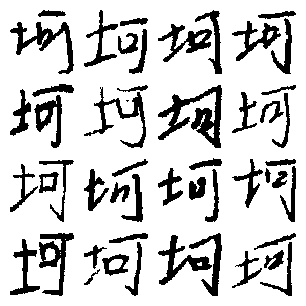 坷坷坷坷
坷坷坷坷
坷坷坷坷
坷坷坷坷